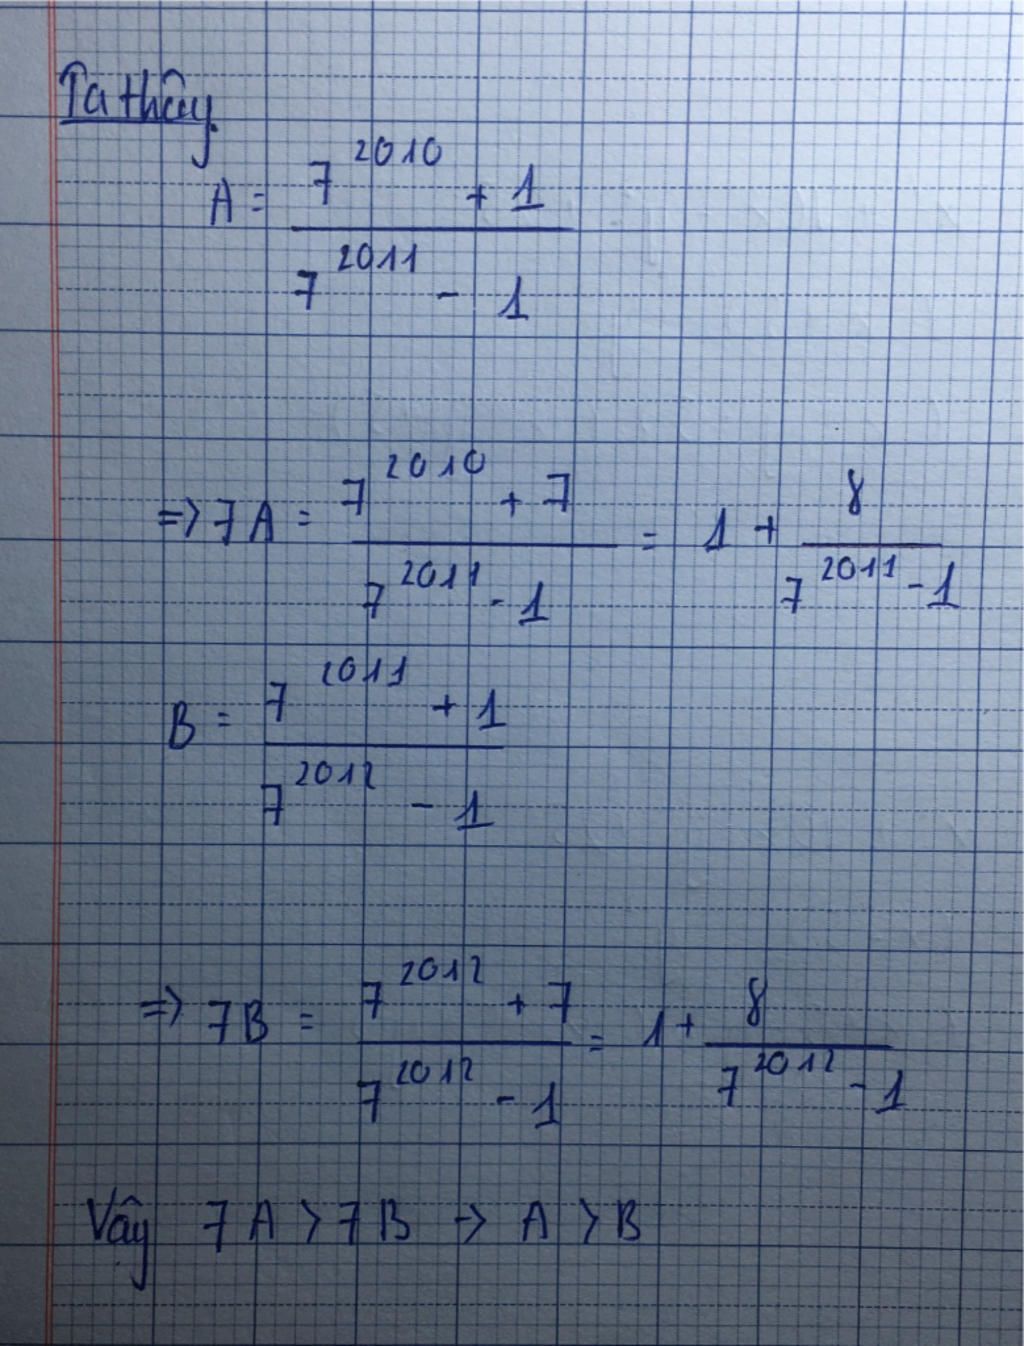 Ta thấy
A = \frac{7^{2010} + 1}{7^{2011} - 1}
=> 7A = \frac{7^{2010} + 7}{7^{2011} - 1} = 1 + \frac{8}{7^{2011} - 1}
B = \frac{7^{2011} + 1}{7^{2012} - 1}
=> 7B = \frac{7^{2012} + 7}{7^{2012} - 1} = 1 + \frac{8}{7^{2012} - 1}
Vậy 7A > 7B -> A > B